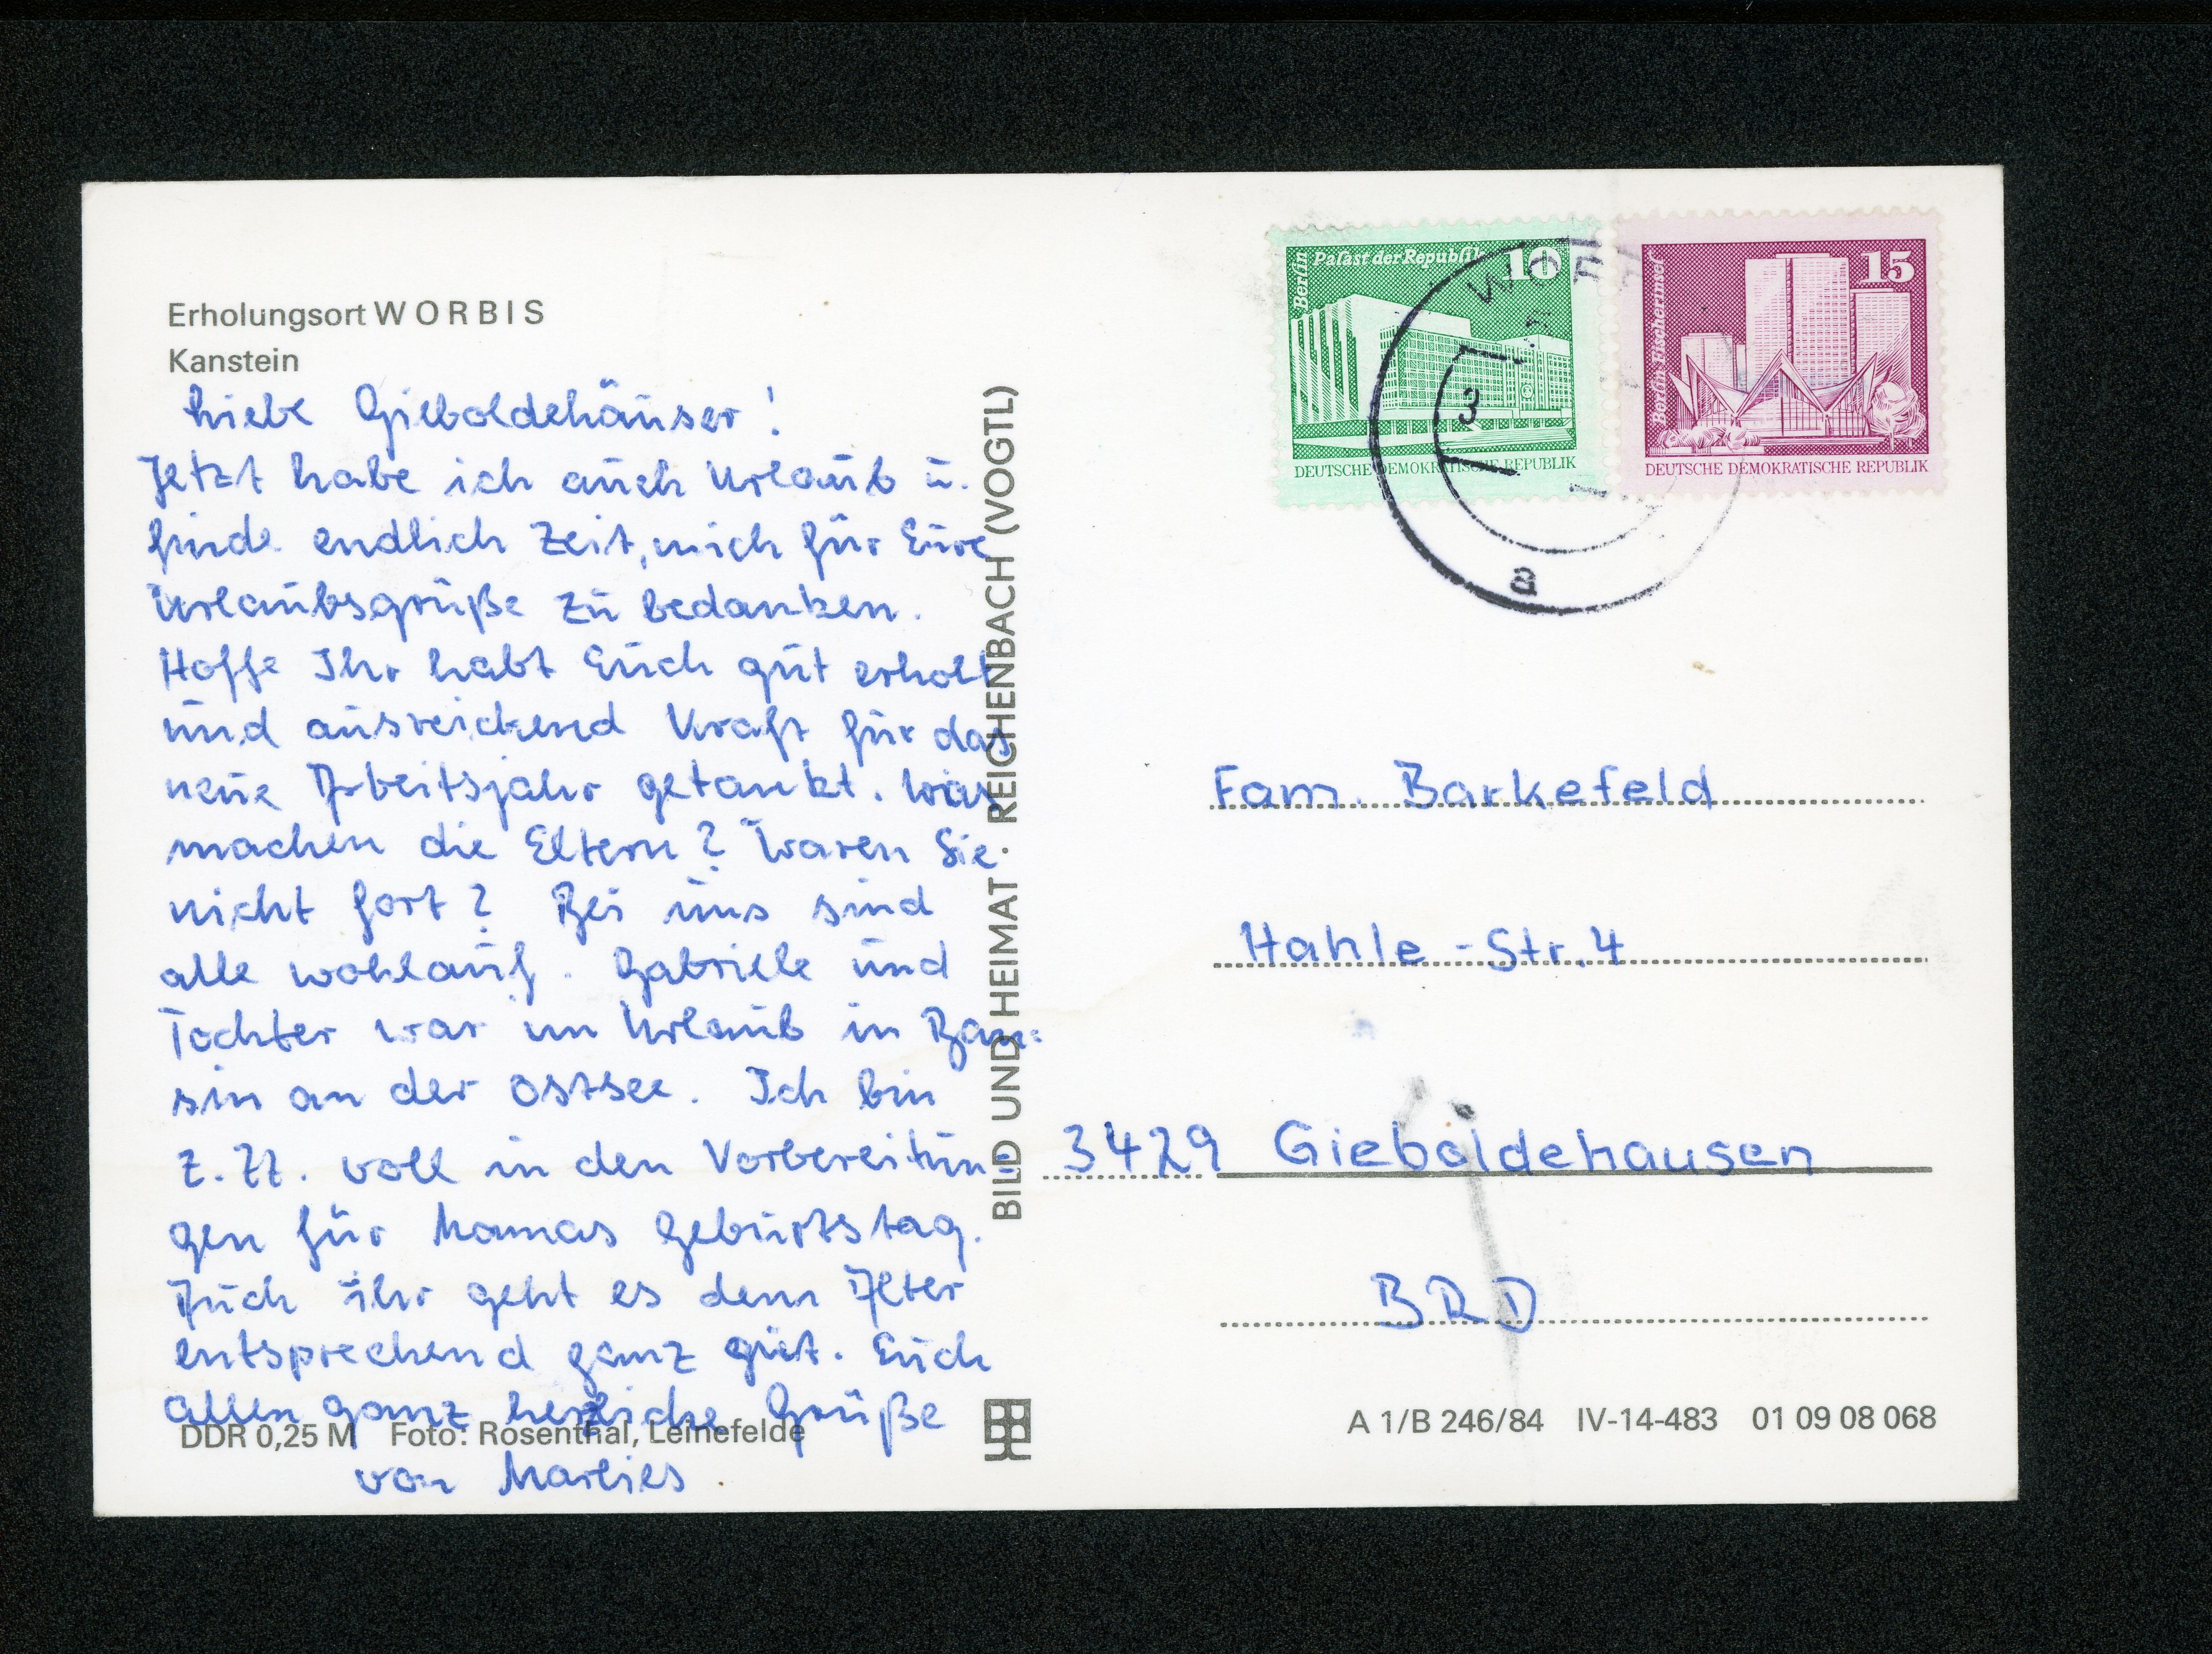 Erholungsort WORBIS
Kanstein
Liebe Gieboldehäuser!
Jetzt habe ich auch Urlaub u.
finde endlich Zeit, mich für Eure
Urlaubsgrüße zu bedanken.
Hoffe Ihr habt Euch gut erholt
und ausreichend Kraft für das
neue Arbeitsjahr getankt. Was
machen die Eltern? Waren Sie
nicht fort? Bei uns sind
alle wohlauf. Gabriele und
Tochter war im Urlaub in Ban=
sin an der Ostsee. Ich bin
z. Zt. voll in den Vorbereitun=
gen für Mamas Geburtstag.
Auch ihr geht es dem Alter
entsprechend ganz gut. Euch
allen ganz herzliche Grüße
von Marlies
DDR 0,25 M Foto: Rosenthal, Leinefelde
BILD UND HEIMAT · REICHENBACH (VOGTL)
Berlin Palast der Republik 10
DEUTSCHE DEMOKRATISCHE REPUBLIK
Berlin Fischerinsel 15
DEUTSCHE DEMOKRATISCHE REPUBLIK
3
a
Fam. Barkefeld
Hahle-Str. 4
3429 Gieboldehausen
BRD
A 1/B 246/84 IV-14-483 01 09 08 068